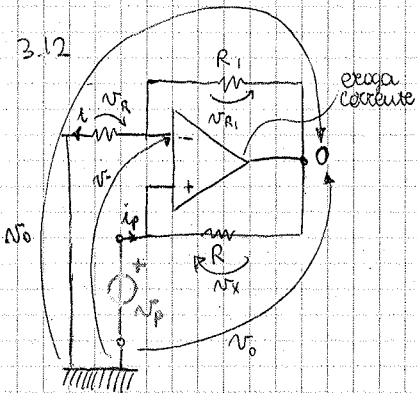 3.12
R₁
eroga
corrente
i
v_R
v_R₁
-
v-
+
O
i_p
R
v_x
v_o
+
v_p
v_o